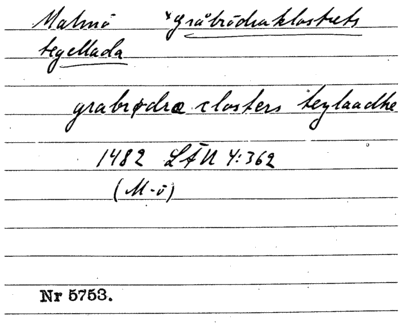 Malmö *gråbrödraklostrets
tegellada
grabrødræ closters teylaadhe
1482 LÄU 4:362
(M-ö)
Nr 5753.